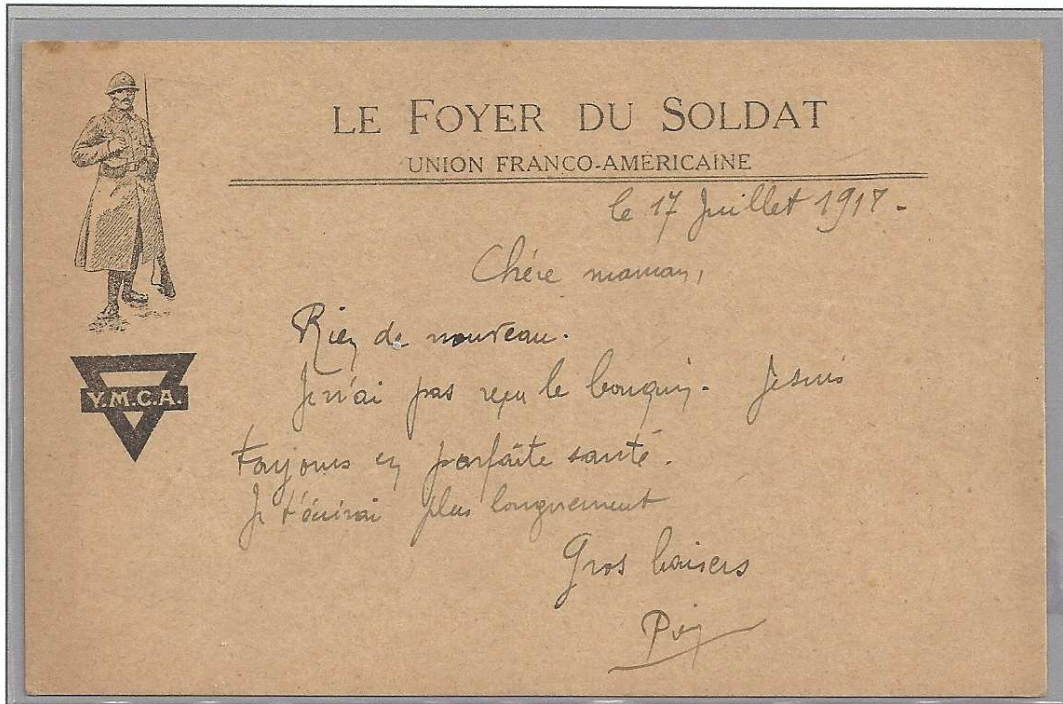 LE FOYER DU SOLDAT
UNION FRANCO-AMÉRICAINE
le 17 Juillet 1918.
Chère maman,
Rien de nouveau.
Je n'ai pas reçu le bouquin. Je suis
Y.M.C.A.
toujours en parfaite santé.
Je t'écrirai plus longuement
Gros baisers